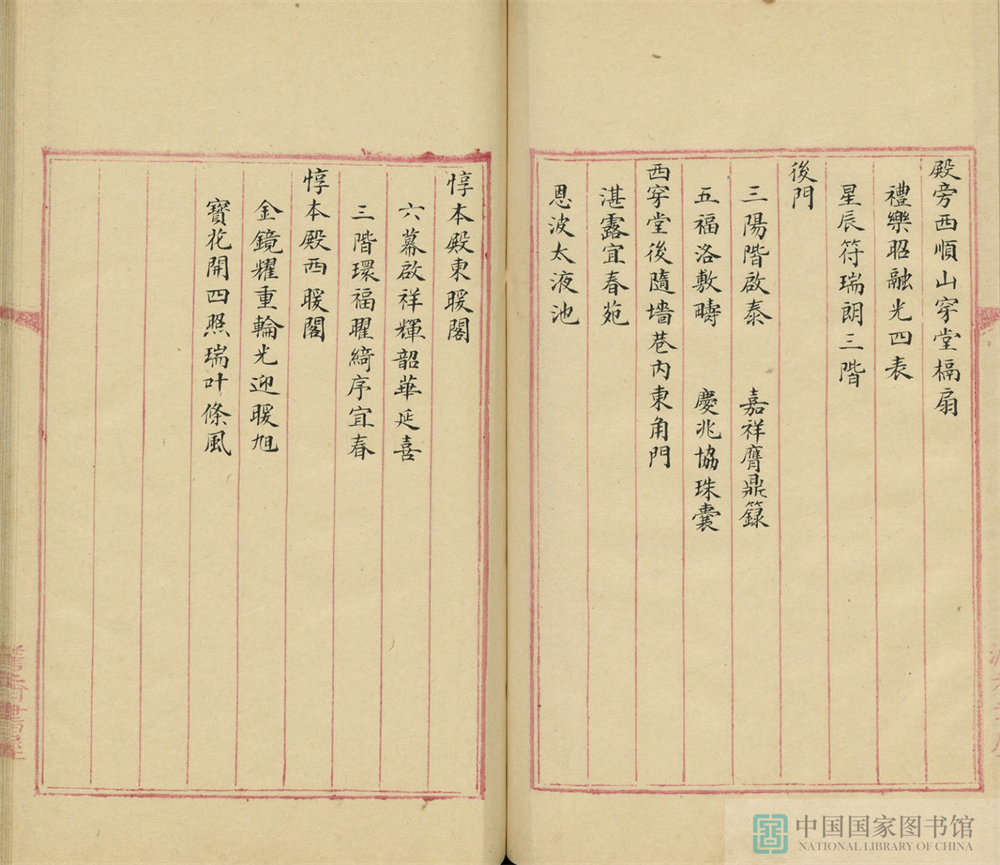 殿旁西順山穿堂槅扇
禮樂昭融光四表
星辰符瑞朗三階
後門
三陽階啟泰　嘉祥膺鼎籙
五福洛敷疇　慶兆協珠囊
西穿堂後隨墻巷內東角門
湛露宜春苑
恩波太液池
惇本殿東暖閣
六幕啟祥輝韶華延喜
三階環福曜綺序宜春
惇本殿西暖閣
金鏡耀重輪光迎暖旭
寶花開四照瑞叶條風
中国国家图书馆
NATIONAL LIBRARY OF CHINA